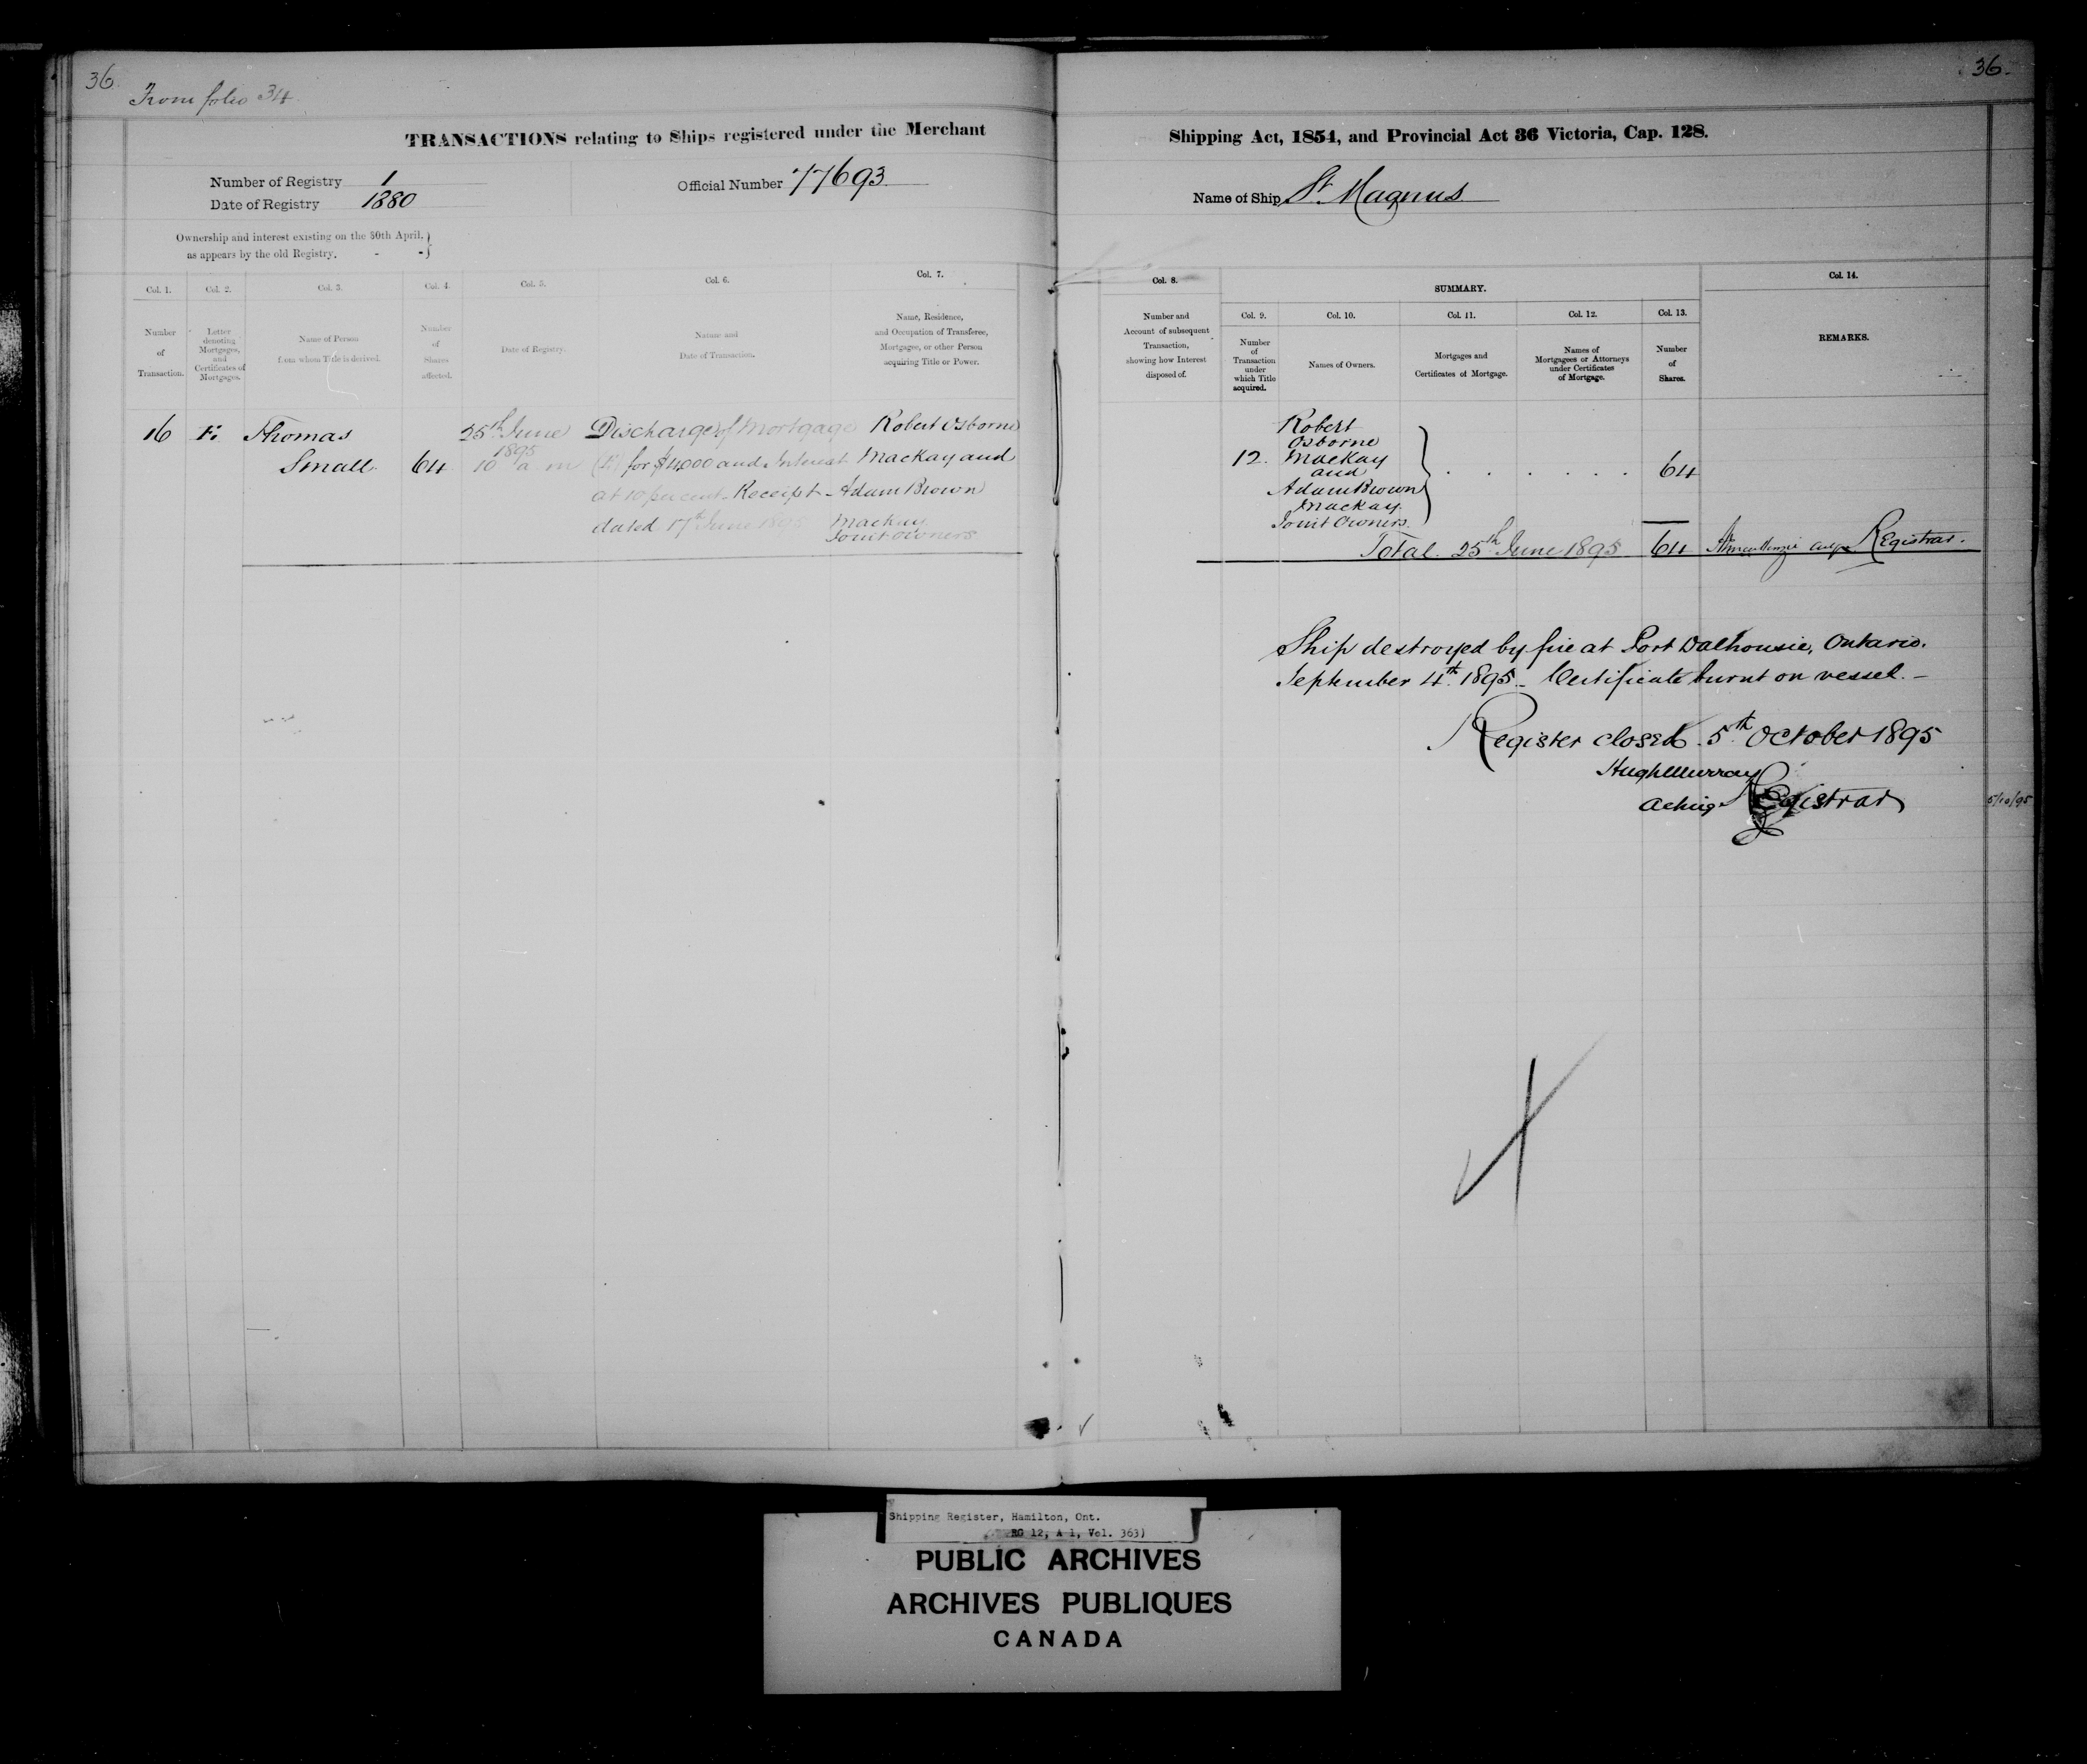 36.
From folio 34
TRANSACTIONS relating to Ships registered under the Merchant
Number of Registry 1
Date of Registry 1880
Official Number 77693
Ownership and interest existing on the 30th April,
as appears by the old Registry. - -
Col. 1.
Col. 2.
Col. 3.
Col. 4.
Col. 5.
Col. 6.
Col. 7.
Number
of
Transaction.
Letter
denoting
Mortgages,
and
Certificates of
Mortgages.
Name of Person
from whom Title is derived.
Number
of
Shares
affected.
Date of Registry.
Nature and
Date of Transaction.
Name, Residence,
and Occupation of Transferee,
Mortgagee, or other Person
acquiring Title or Power.
16
Thomas
Small
64
25th June
1895
10 a. m
Discharge of Mortgage
for $4,000 and Interest
at 10 per cent - Receipt -
dated 17th June 1895
Robert Osborne
Mackay and
Adam Brown
Mackay
Joint Owners
36.
Shipping Act, 1854, and Provincial Act 36 Victoria, Cap. 128.
Name of Ship St. Magnus
Col. 8.
SUMMARY.
Col. 9.
Col. 10.
Col. 11.
Col. 12.
Col. 13.
Col. 14.
Number and
Account of subsequent
Transaction,
showing how Interest
disposed of.
Number
of
Transaction
under
which Title
acquired.
Names of Owners.
Mortgages and
Certificates of Mortgage.
Names of
Mortgagees or Attorneys
under Certificates
of Mortgage.
Number
of
Shares.
REMARKS.
12.
Robert
Osborne
Mackay
and
Adam Brown
Mackay.
Joint Owners.
64
Total. 25th June 1895 64 Registrar.
Ship destroyed by fire at Port Dalhousie, Ontario.
September 4th. 1895 - Certificate burnt on vessel. -
Register closed. 5th October 1895
Hugh Murray
Acting Registrar
5/10/95
Shipping Register, Hamilton, Ont.
RG 12, A 1, Vol. 363)
PUBLIC ARCHIVES
ARCHIVES PUBLIQUES
CANADA